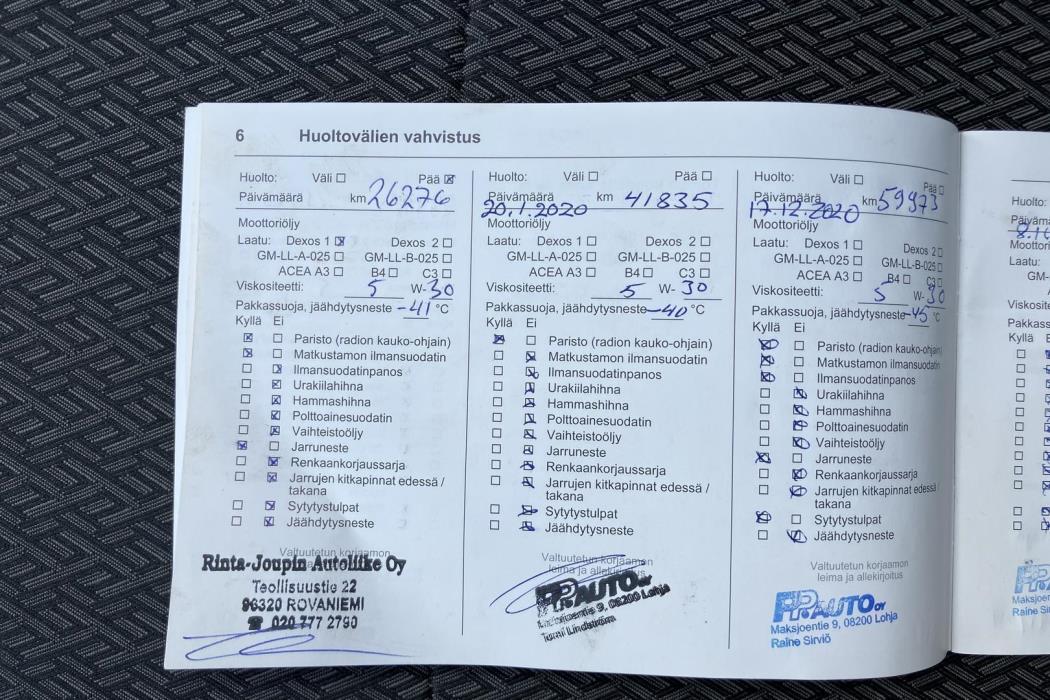 6 Huoltovälien vahvistus
Huolto: Väli Pää
Päivämäärä km 26276
Moottoriöljy
Laatu: Dexos 1 Dexos 2
GM-LL-A-025 GM-LL-B-025
ACEA A3 B4 C3
Viskositeetti: 5 W-30
Pakkassuoja, jäähdytysneste -41 °C
Kyllä Ei
Paristo (radion kauko-ohjain)
Matkustamon ilmansuodatin
Ilmansuodatinpanos
Urakiilahihna
Hammashihna
Polttoainesuodatin
Vaihteistoöljy
Jarruneste
Renkaankorjaussarja
Jarrujen kitkapinnat edessä /
takana
Sytytystulpat
Jäähdytysneste
Valtuutetun korjaamon
Rinta-Joupin Autoliike Oy
Teollisuustie 22
96320 ROVANIEMI
☎ 020 777 2790
Huolto: Väli Pää
Päivämäärä km 41835
20.1.2020
Moottoriöljy
Laatu: Dexos 1 Dexos 2
GM-LL-A-025 GM-LL-B-025
ACEA A3 B4 C3
Viskositeetti: 5 W-30
Pakkassuoja, jäähdytysneste -40 °C
Kyllä Ei
Paristo (radion kauko-ohjain)
Matkustamon ilmansuodatin
Ilmansuodatinpanos
Urakiilahihna
Hammashihna
Polttoainesuodatin
Vaihteistoöljy
Jarruneste
Renkaankorjaussarja
Jarrujen kitkapinnat edessä /
takana
Sytytystulpat
Jäähdytysneste
Valtuutetun korjaamon
leima ja allekirjoitus
PP.AUTO oy
Maksjoentie 9, 08200 Lohja
Tomi Lindström
Huolto: Väli Pää
Päivämäärä km 59973
17.12.2020
Moottoriöljy
Laatu: Dexos 1 Dexos 2
GM-LL-A-025 GM-LL-B-025
ACEA A3 B4 C3
Viskositeetti: 5 W-30
Pakkassuoja, jäähdytysneste -45 °C
Kyllä Ei
Paristo (radion kauko-ohjain)
Matkustamon ilmansuodatin
Ilmansuodatinpanos
Urakiilahihna
Hammashihna
Polttoainesuodatin
Vaihteistoöljy
Jarruneste
Renkaankorjaussarja
Jarrujen kitkapinnat edessä /
takana
Sytytystulpat
Jäähdytysneste
Valtuutetun korjaamon
leima ja allekirjoitus
PP.AUTO oy
Maksjoentie 9, 08200 Lohja
Raine Sirviö
Huolto:
Laatu:
Kyllä Ei